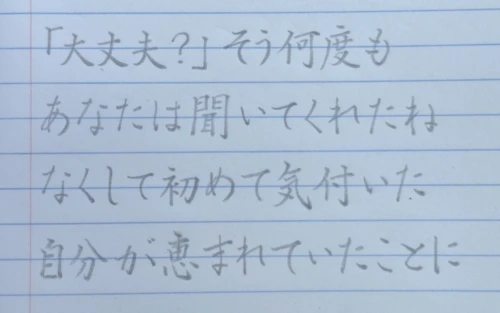 「大丈夫？」そう何度も
あなたは聞いてくれたね
なくして初めて気付いた
自分が恵まれていたことに